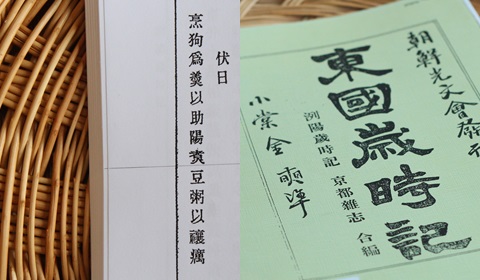 伏日
烹狗爲羹以助陽煑豆粥以禳癘
朝鮮光文會發
東國歲時記
洌陽歲時記 京都雜志 合編
小棠金奭準